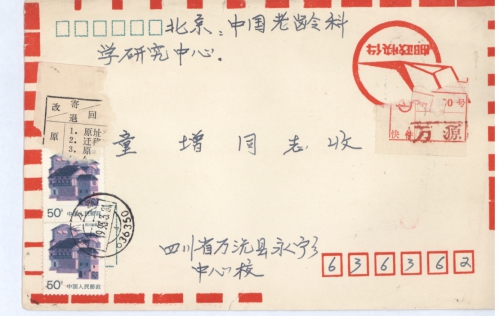 北京:中国老龄科
学研究中心.
邮政快件
0号
快件
万源
改 寄 退 回
原
1.
2.
3.
原址
迁移
原
童增同志收
50分 中国人民邮政
50分 中国人民邮政
636350
四川省万沅县永宁乡
中心校
636362